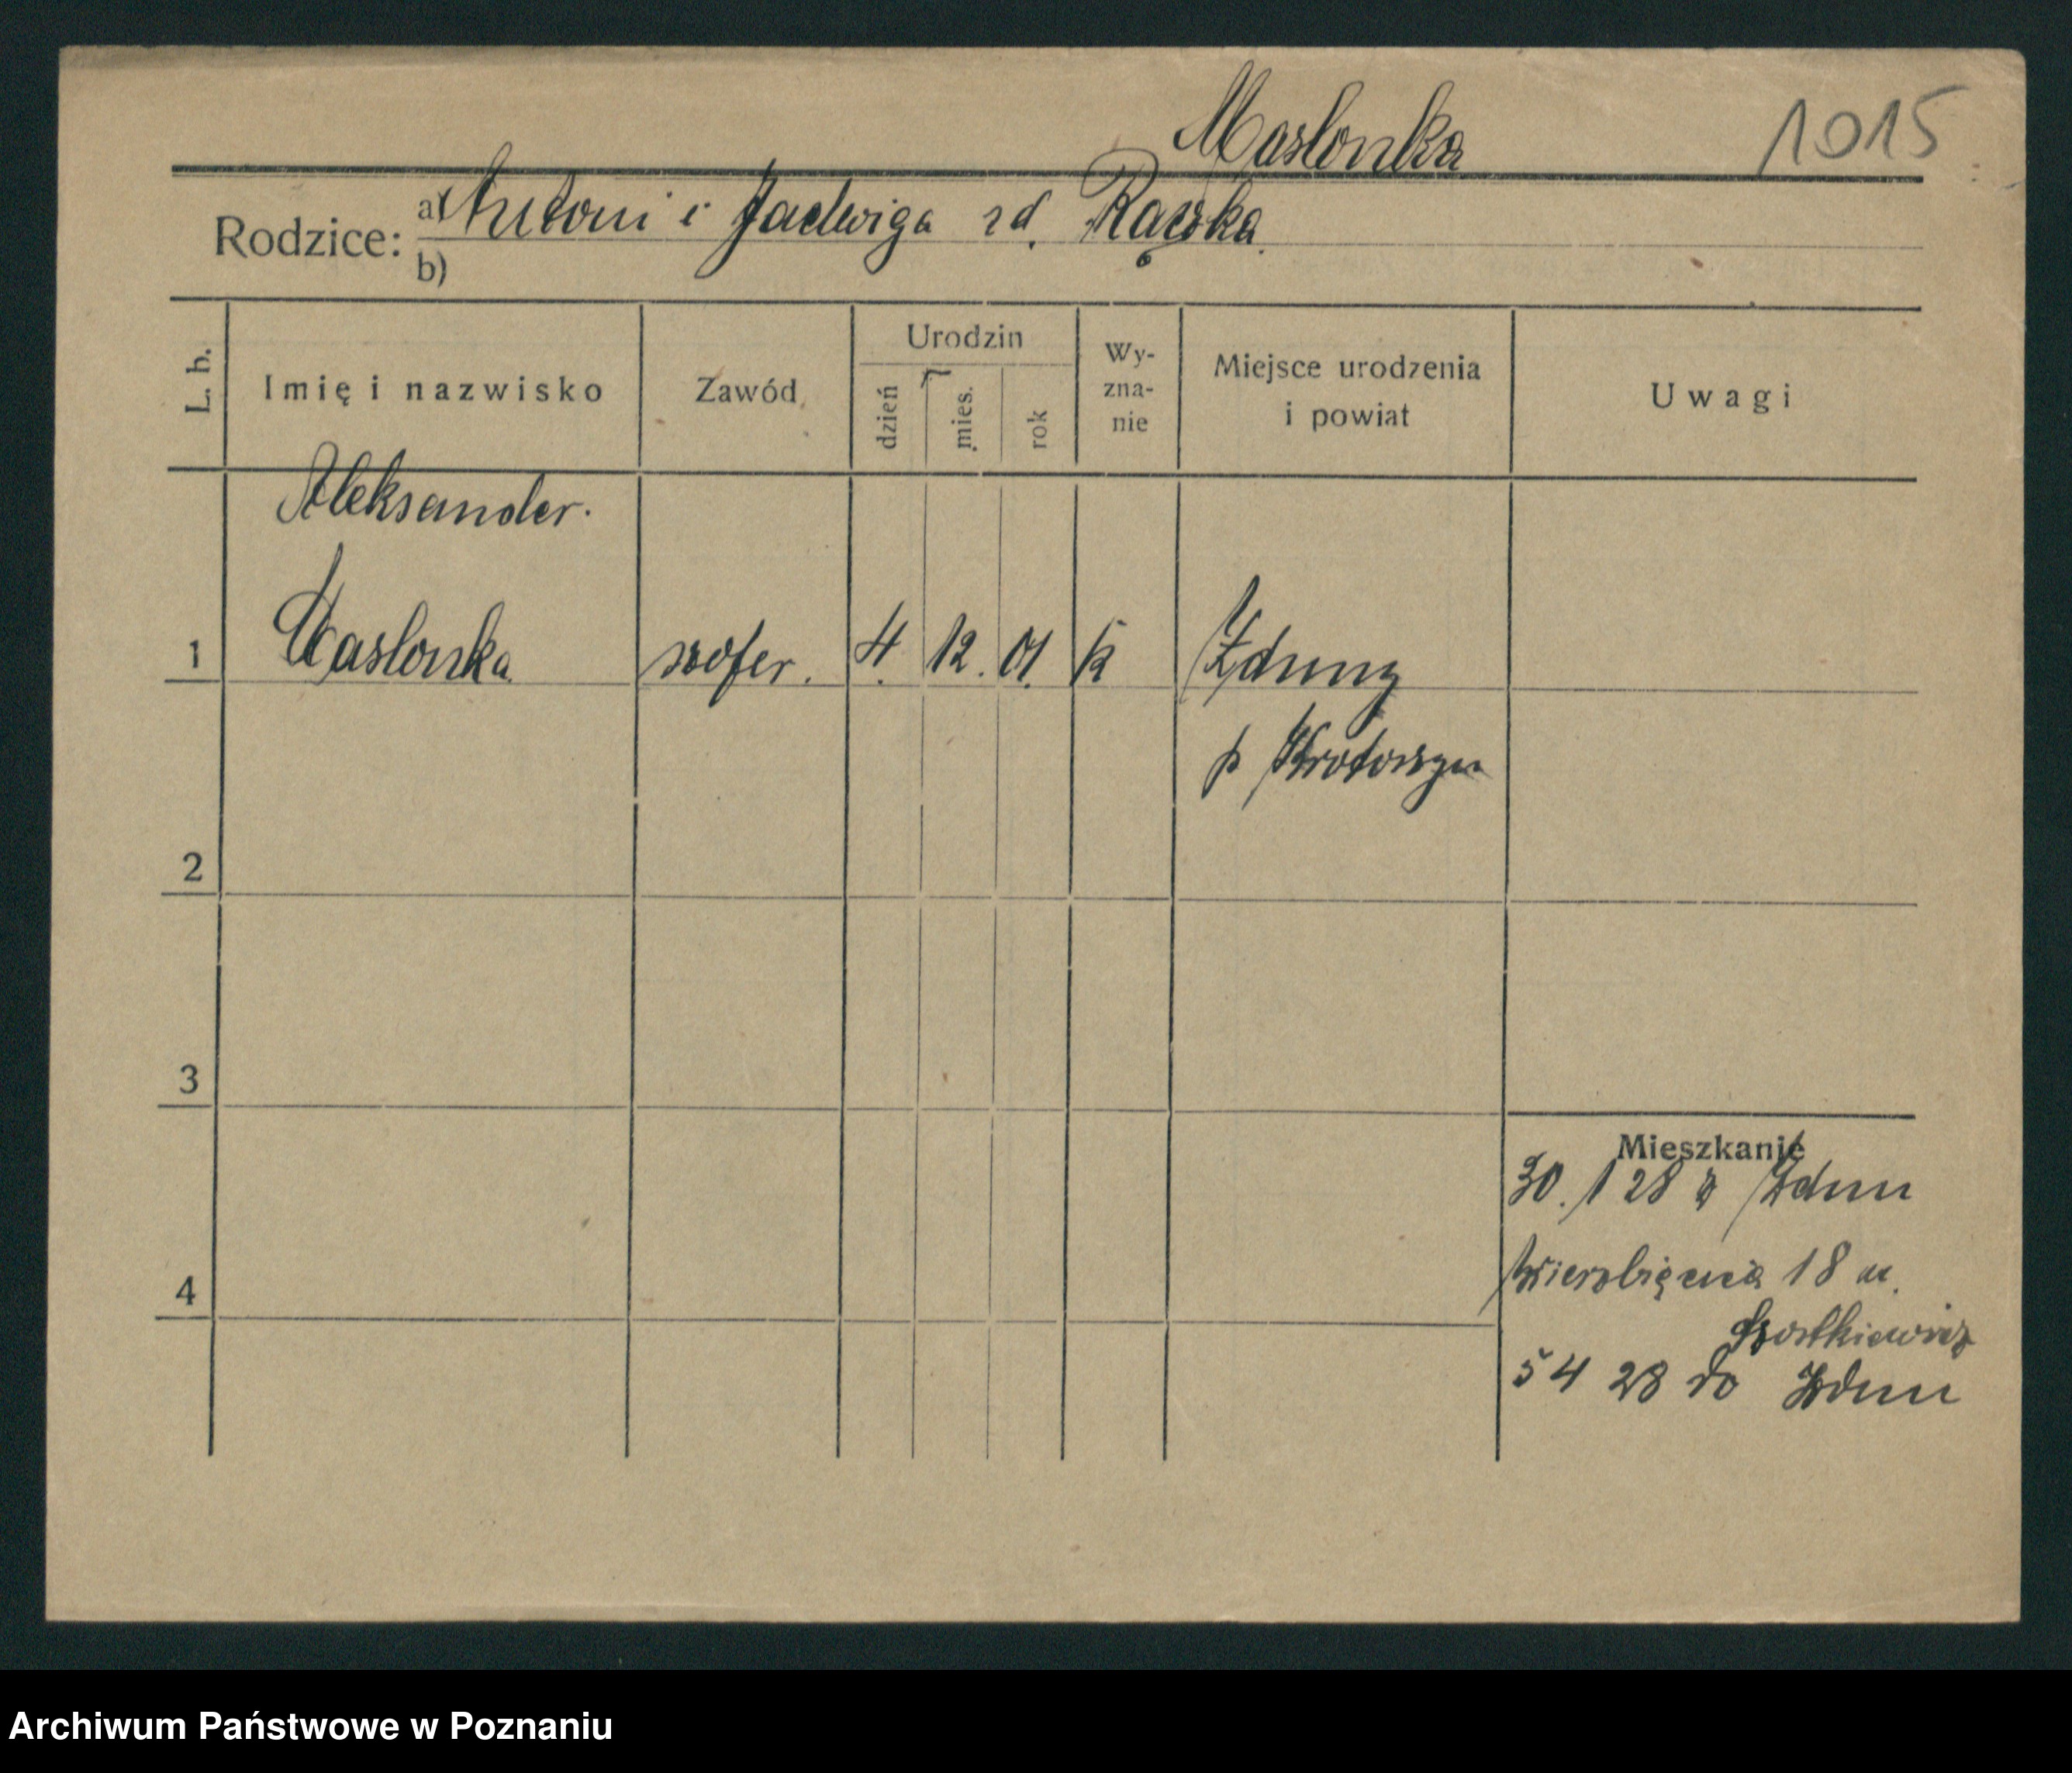 Maslonka 1015
Rodzice: a) Antoni i Jadwiga zd. Raczka
b)
L. b. Imię i nazwisko Zawód Urodzin dzień mies. rok Wy-zna-nie Miejsce urodzenia i powiat Uwagi
Aleksander.
1 Maslonka szofer. 4. 12. 01. k Zduny
p Krotoszyn
2
3
4
Mieszkanie
30. 1 28 z Zdun
Wierzbięcice 18 u.
Szostkiewicz
5 4 28 do Zdun
Archiwum Państwowe w Poznaniu